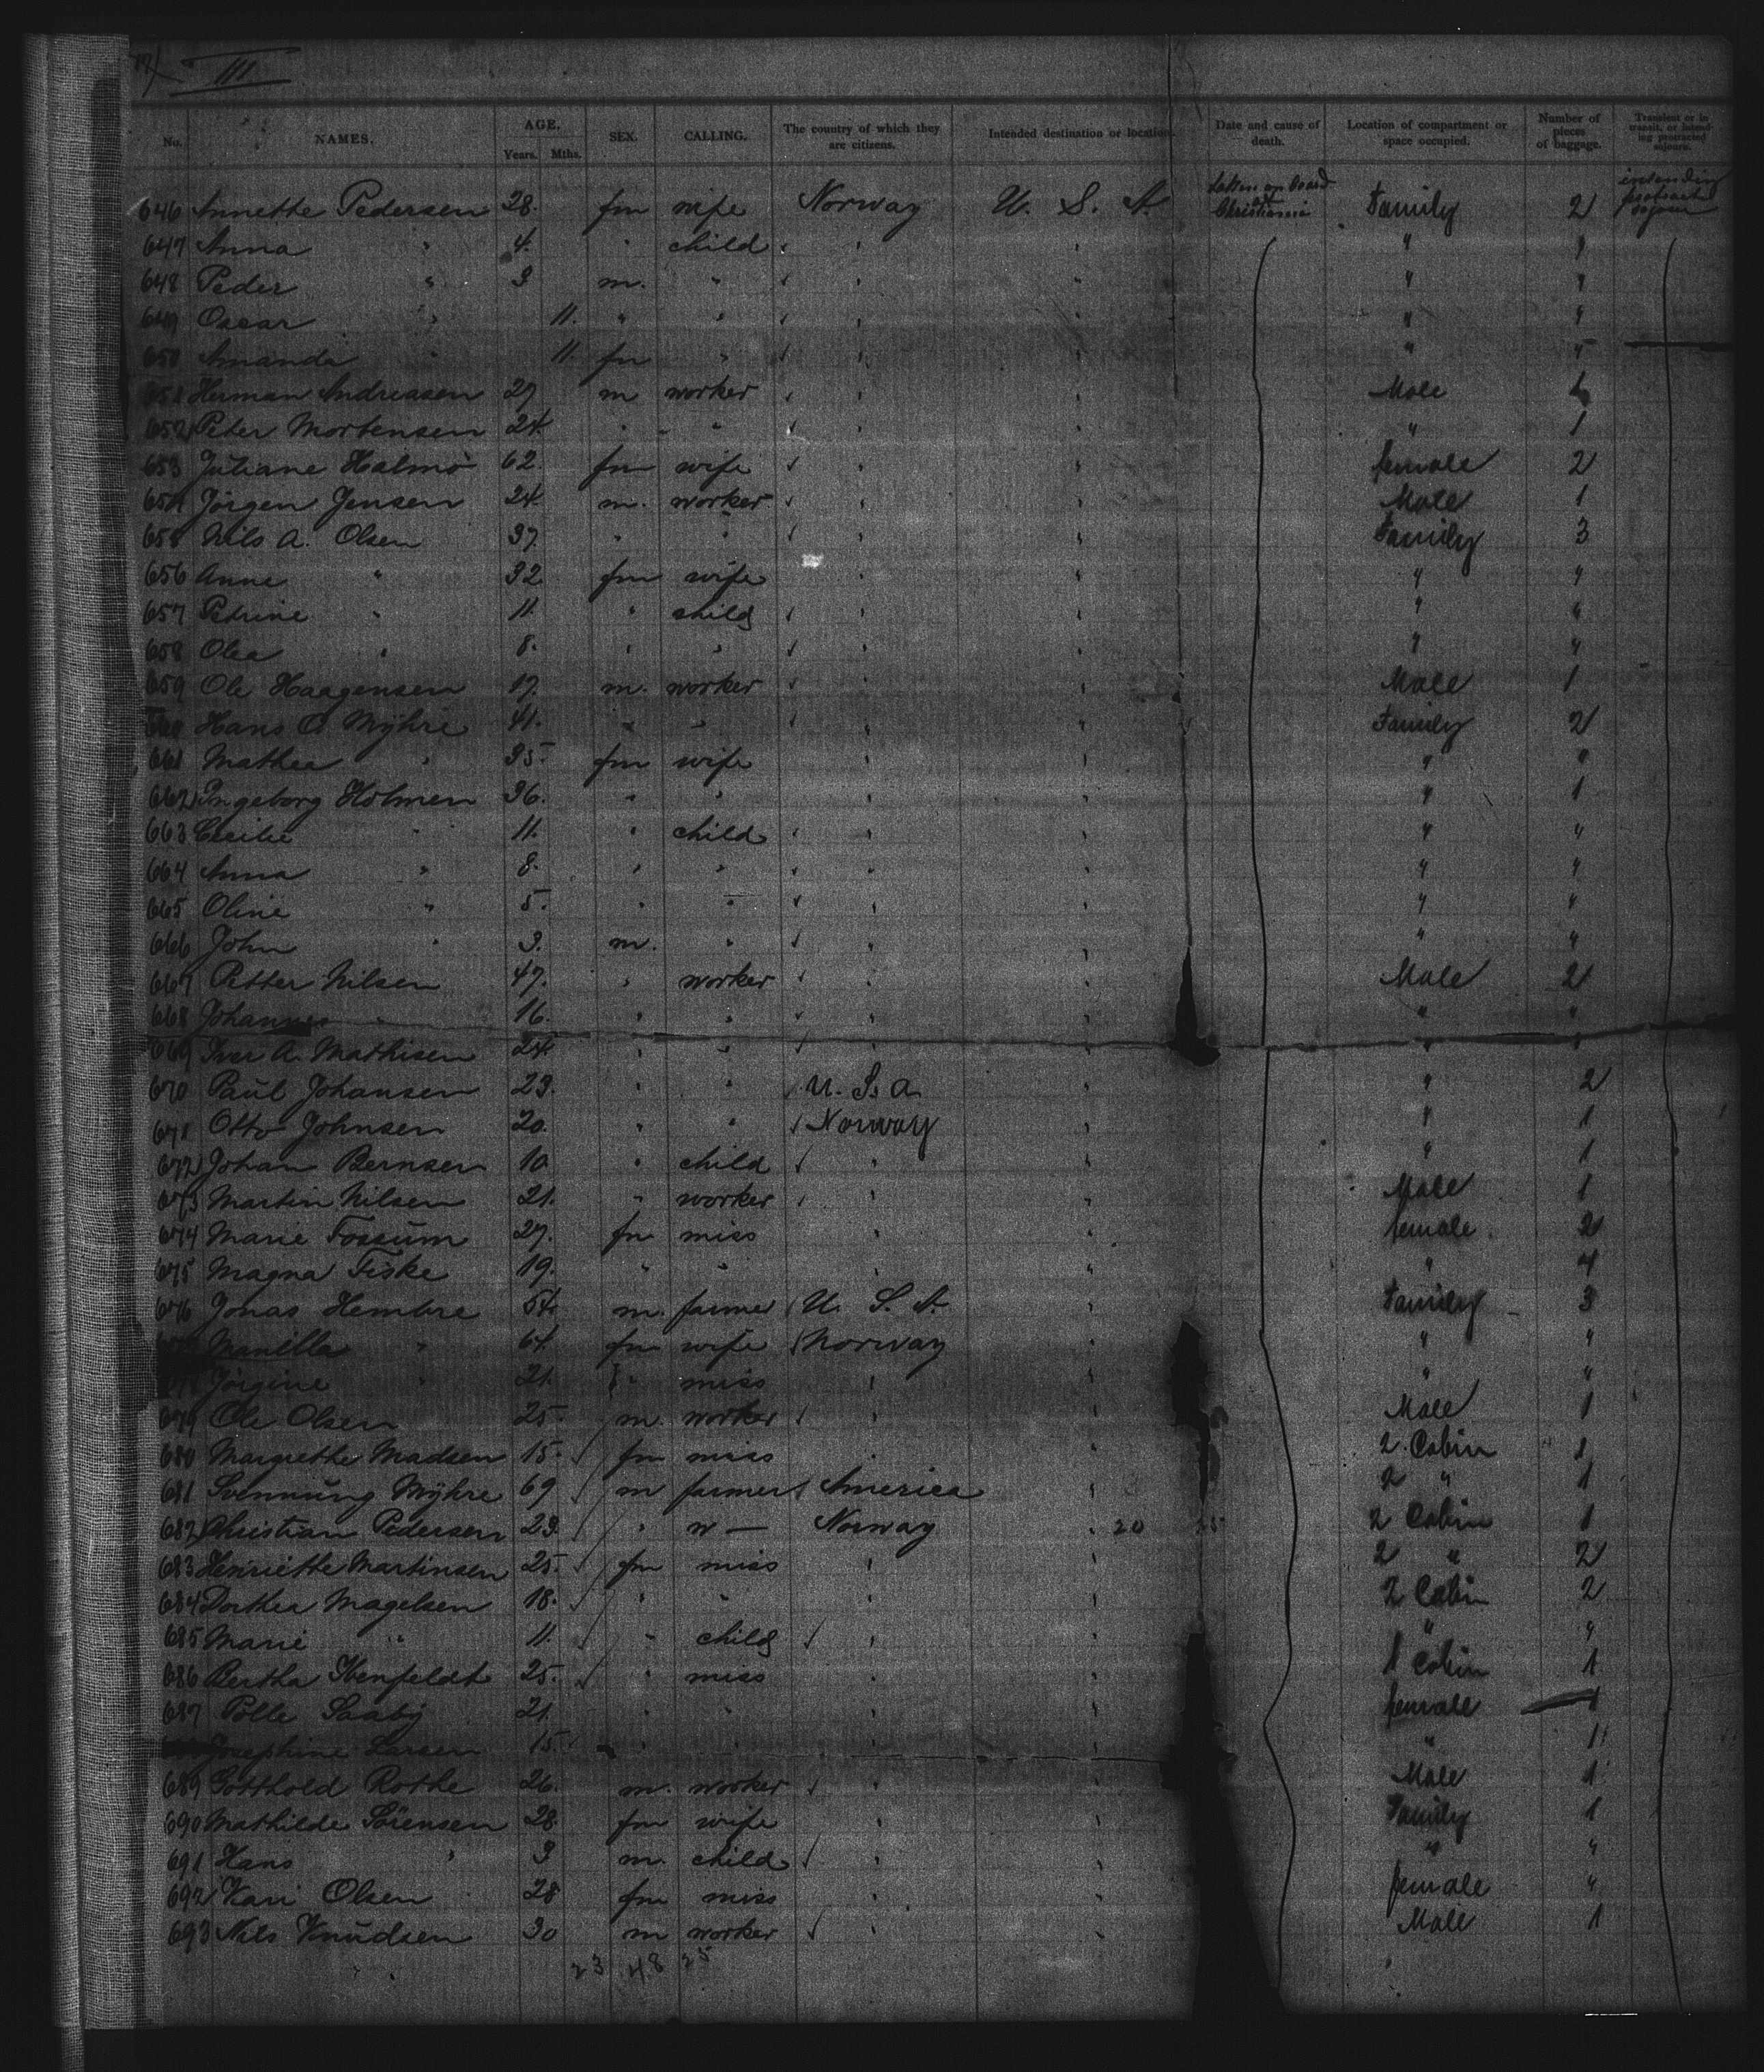 III
No. NAMES. AGE. Years. Mths. SEX. CALLING. The country of which they are citizens. Intended destination or location. Date and cause of death. Location of compartment or space occupied. Number of pieces of baggage. Transient or in transit, or intending protracted sojourn.
646 Annette Pedersen 28. fm wife Norway U. S. A. Taken on board at Christiania Family 2 intending protracted sojourn
647 Anna " 4. " child " " " "
648 Peder " 3 m. " " " " "
649 Oscar " 11. " " " " " "
650 Amanda " 11. fm " " " " "
651 Herman Andreasen 27 m worker " " Male 1
652 Peter Mortensen 24. " " " " " 1
653 Juliane Halmö 62. fm wife " " female 2
654 Jörgen Jensen 24. m. worker " " Male 1
655 Nils A. Olsen 37. " " " " Family 3
656 Anne " 32 fm wife " " " "
657 Petrine " 11. " child " " " "
658 Olea " 8. " " " " " "
659 Ole Haagensen 17. m. worker " " Male 1
660 Hans O Myhre 41. " " " " Family 2
661 Mathea " 35. fm wife " " " "
662 Ingeborg Holmen 36. " " " " " 1
663 Cecilie " 11. " child " " " "
664 Anna " 8. " " " " " "
665 Oline " 5. " " " " " "
666 John " 3. m. " " " " "
667 Petter Nilsen 47. " worker " " Male 2
668 Johannes " 16. " " " " " "
669 Iver A. Mathisen 24. " " " " " "
670 Paul Johansen 23. " " U. S. a " " 2
671 Otto Johnsen 20. " " Norway " " 1
672 Johan Bernsen 10 " child " " " 1
673 Martin Nilsen 21. " worker " " Male 1
674 Marie Fossum 27. fm miss " " female 2
675 Magna Fiske 19. " " " " " 4
676 Jonas Hembre 54. m. farmer U. S. A. " Family 3
Manilla " 64. fm wife Norway " " "
Jörgine " 21. " miss " " " "
679 Ole Olsen 25. m. worker " " Male 1
680 Margrethe Madsen 15. fm miss " " 2. Cabin 1
681 Svennung Myhre 69 m farmer America " 2 " 1
682 Christian Pedersen 23. " w — Norway " 20 25 2 Cabin 1
683 Henriette Martinsen 25. fm miss " " 2 " 2
684 Dorthea Magelsen 18. " " " " 2 Cabin 2
685 Marie " 11. " child " " " "
686 Bertha Ibenfeldt 25. " miss " " 1 Cabin 1
687 Polle Saaby 21. " " " " female 1
Josephine Larsen 15. " " " " " 1
689 Gotthold Rothe 26. m. worker " " Male 1
690 Mathilde Sörensen 28. fm wife " " Family 1
691 Hans " 3 m. child " " " "
692 Kari Olsen 28 fm miss " " female "
693 Nils Knudsen 30 m worker " " Male 1
23 48 25